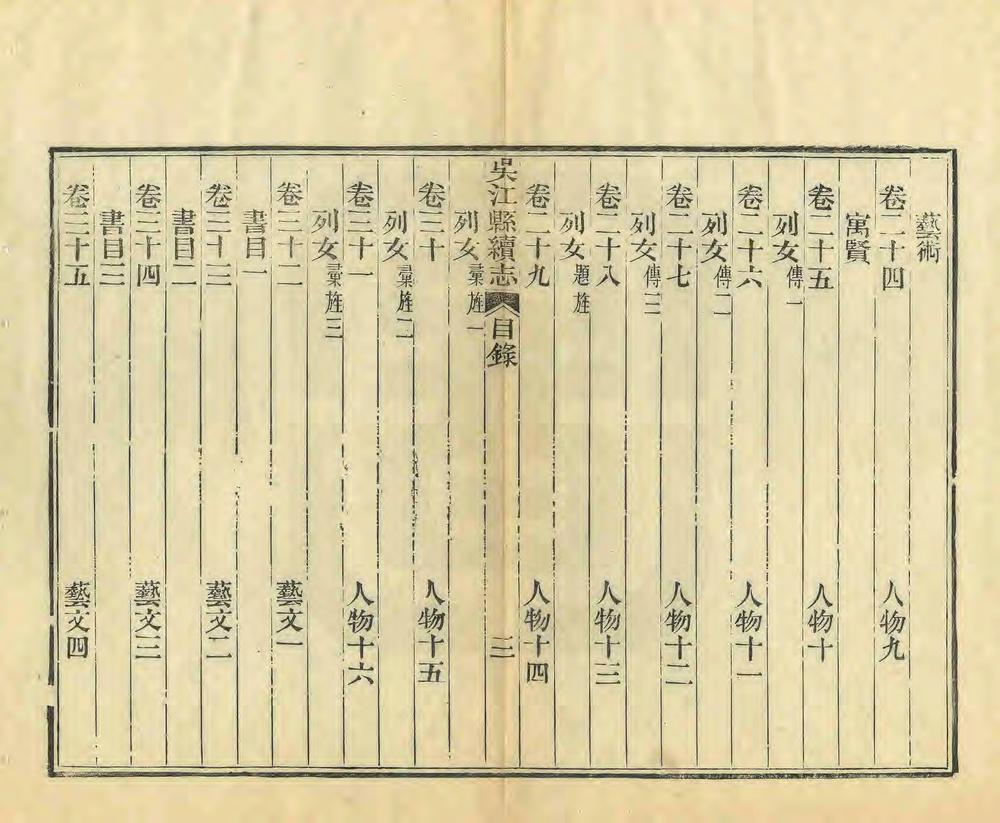 藝術
卷二十四　人物九
寓賢
卷二十五　人物十
列女傳一
卷二十六　人物十一
列女傳二
卷二十七　人物十二
列女傳三
卷二十八　人物十三
列女題旌
卷二十九　人物十四
吳江縣續志　目錄　三
列女彙旌一
卷三十　人物十五
列女彙旌二
卷三十一　人物十六
列女彙旌三
卷三十二　藝文一
書目一
卷三十三　藝文二
書目二
卷三十四　藝文三
書目三
卷三十五　藝文四